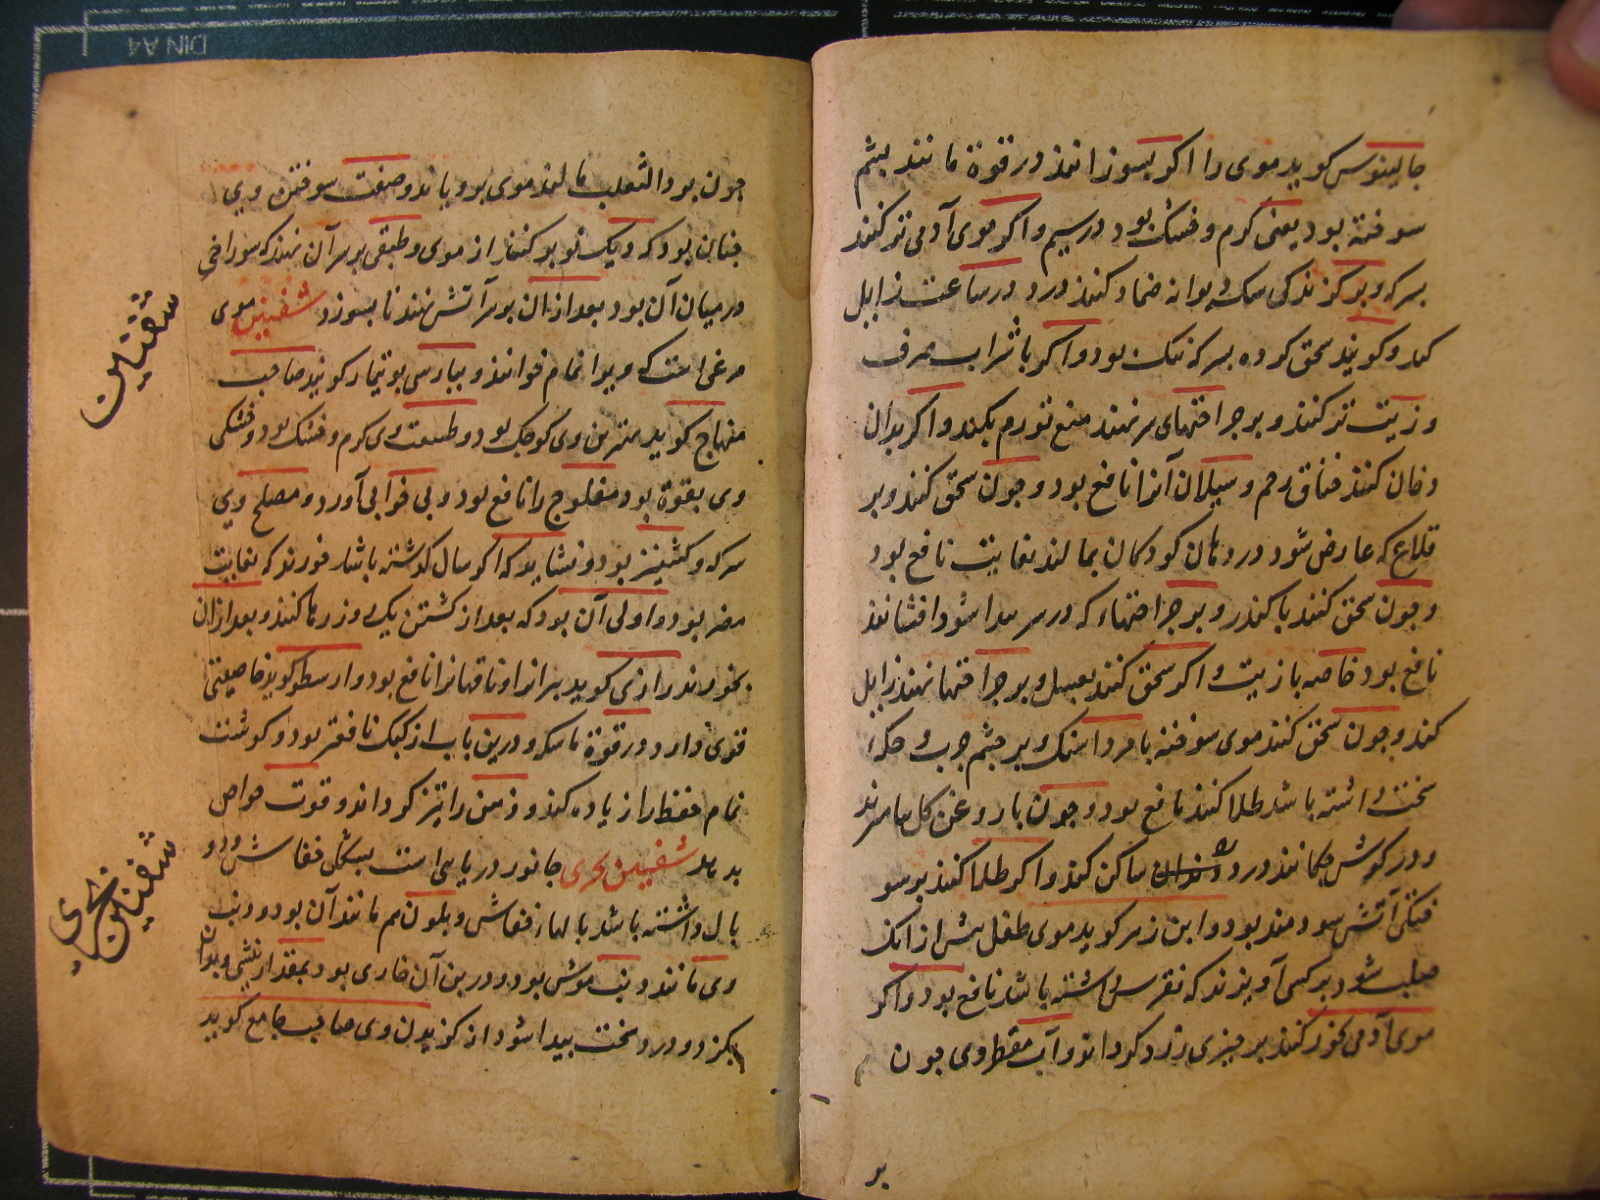 جالینوس کوید موی را اکر بسوزانند در قوة مانند پشم
سوخته بود یعنی کرم و خشک بود در سیم و اکر موی آدمی تر کنند
بسرکه و بر کزندکی سک دیوانه ضماد کنند درد در ساعت زایل
کند و کویند سحق کرده بسرکه نیک بود و اکر با شراب صرف
و زیت تر کنند و بر جراحتهای سر نهند منع تورم بکند و اکر بدان
دخان کنند خناق رحم و سیلان آنرا نافع بود و چون سحق کنند و بر
قلاع که عارض شود در دهان کودکان بمالند بغایت نافع بود
و چون سحق کنند با کندر و بر جراحتها که در سر پیدا شود افشانند
نافع بود خاصه با زیت و اکر سحق کنند بعسل و بر جراحتها نهند زایل
کند و چون سحق کنند موی سوخته با مرداسنک و بر چشم جرب و حکه
سخت داشته باشد طلا کنند نافع بود و چون با روغن کل بیامیزند
و در کوش چکانند درد دندان ساکن کند و اکر طلا کنند بر سو
ختکی آتش سودمند بود و ابن زهر کوید موی طفل پیش از انک
صلب شود بر کسی آویزند که نقرس داشته باشد نافع بود و اکر
موی آدمی بخور کنند بر چیزی زرد کرداند و آب مقطر وی چون
بر
چون بر داء الثعلب مالند موی برویاند و صفت سوختن وی
چنان بود که دیک نو بر کنند از موی و طبقی بر سر آن نهند که سوراخی
در میان آن بود بعد از ان بر سر آتش نهند تا بسوزد شفنین موی
مرغی است که ویرا تمام خوانند و بپارسی بوتیمار کویند صاحب
منهاج کوید بهترین وی کوچک بود و طبیعت وی کرم و خشک بود و خشکی
وی بقوة بود مفلوج را نافع بود و بی خوابی آورد و مصلح وی
سرکه و کشنیز بود و نشاید که اکر سال کوشته باشد خورند که بغایت
مضر بود و اولی آن بود که بعد از کشتن یک روز رها کنند و بعد از ان
بخورند رازی کوید پیرانرا و ناقهانرا نافع بود و ارسطو کوید خاصیتی
قوی دارد در قوة ماسکه و درین باب از کبک نافعتر بود و کوشت
تمام حفظ را زیاده کند و ذهن را تیز کرداند و قوت حواس
بدهد شفنین بحری جانور دریایی است بشکل خفاش و دو
بال داشته باشد بالها ز خفاش و بلون هم مانند آن بود و دنب
وی مانند دنب موش بود و در بن آن خاری بود بمقدار نیشی و بدان
بکزد و درد سخت پیدا شود از کزیدن وی صاحب جامع کوید
شفنین
شفنین بحری